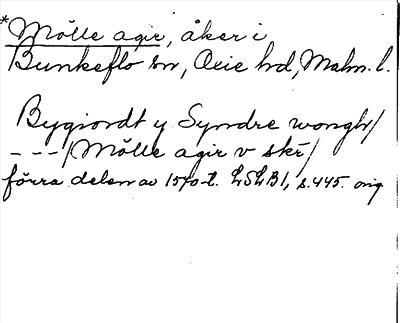 *Mölle agir, åker i
Bunkeflo sn, Oxie hd, Malm. l.
Bygiordt y Syndre wongh/
---/Mölle agir v skr̄/
förra delen av 1570-t. LSLB1, s. 445. orig